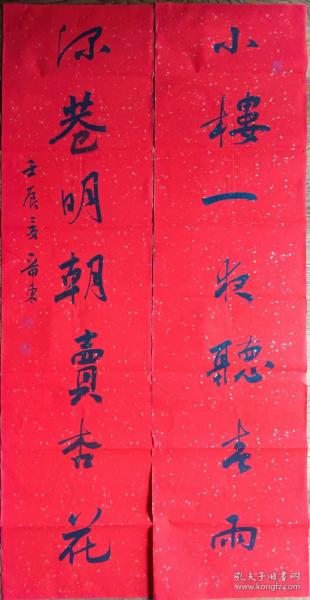 小樓一夜聽春雨
深巷明朝賣杏花
壬辰之夏晉東
孔夫子旧书网
www.kongfz.com